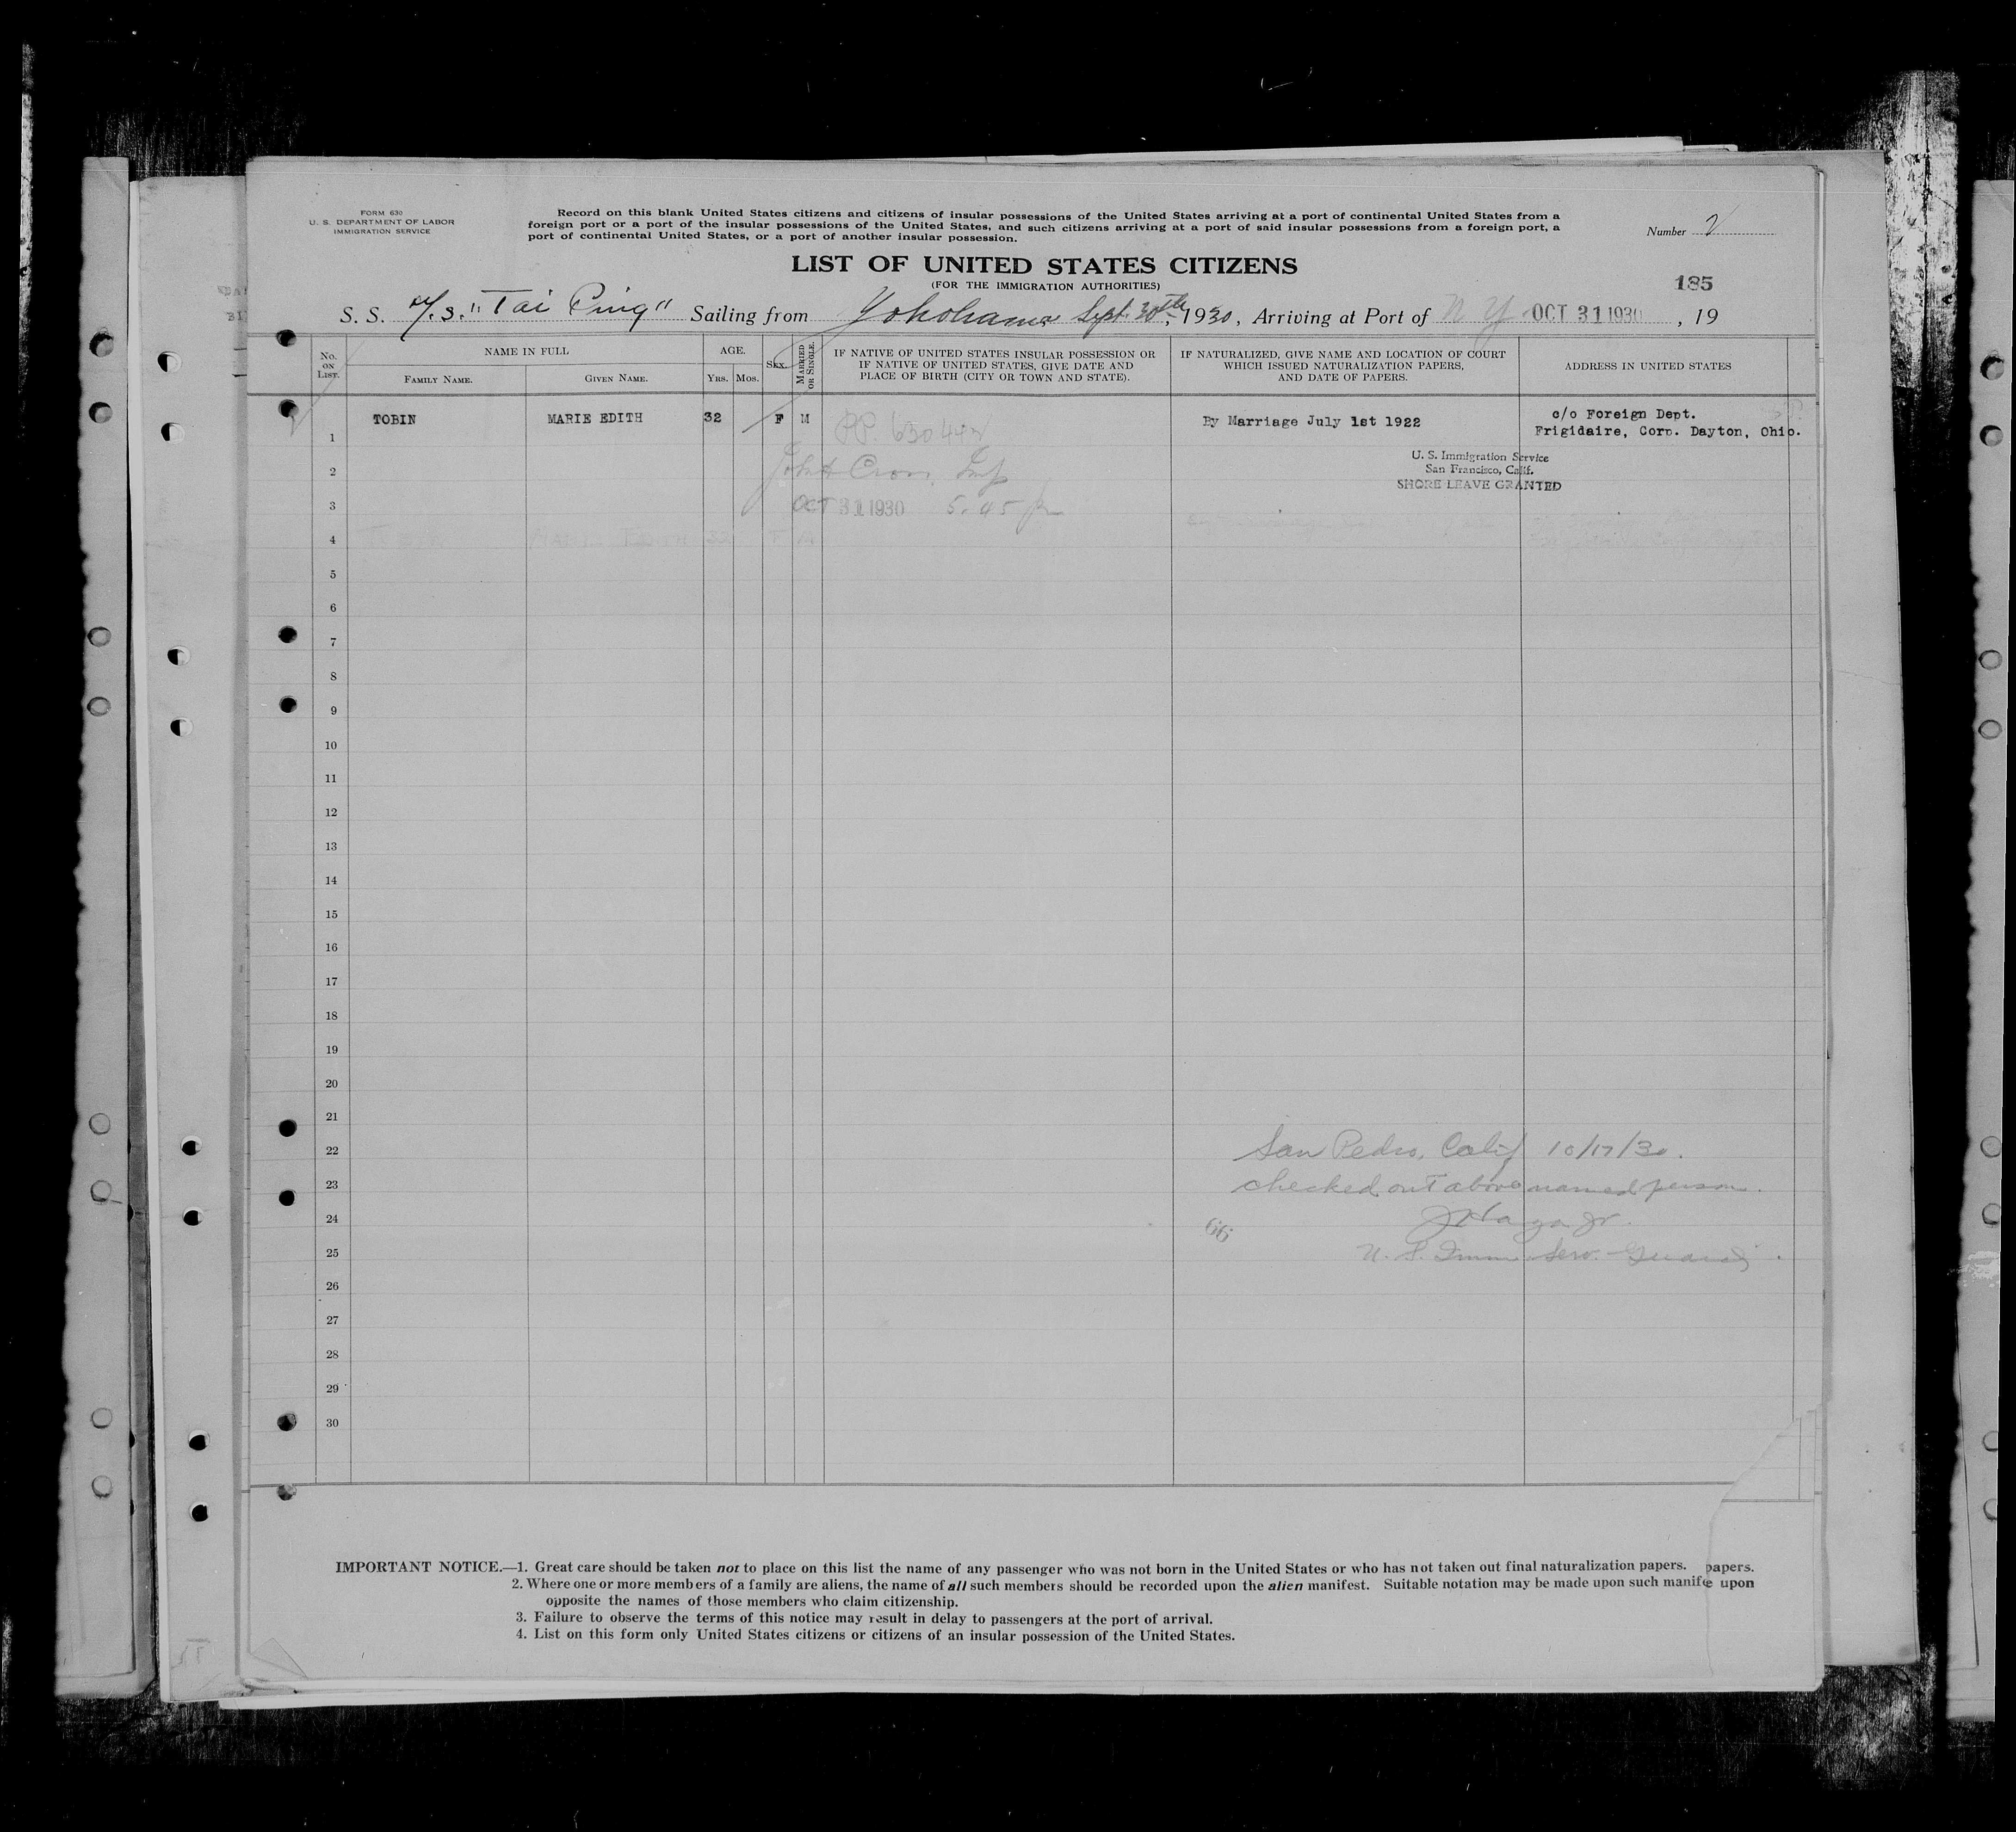 FORM 630
U. S. DEPARTMENT OF LABOR
IMMIGRATION SERVICE
Record on this blank United States citizens and citizens of insular possessions of the United States arriving at a port of continental United States from a
foreign port or a port of the insular possessions of the United States, and such citizens arriving at a port of said insular possessions from a foreign port, a
port of continental United States, or a port of another insular possession.
Number 2
LIST OF UNITED STATES CITIZENS
(FOR THE IMMIGRATION AUTHORITIES)
185
S. S. M/S. "Tai Ping" Sailing from Yokohama Sept. 30th, 1930, Arriving at Port of N Y OCT 31 1930, 19
No. ON LIST.
NAME IN FULL
FAMILY NAME.
GIVEN NAME.
AGE.
YRS.
MOS.
SEX.
MARRIED OR SINGLE.
IF NATIVE OF UNITED STATES INSULAR POSSESSION OR
IF NATIVE OF UNITED STATES, GIVE DATE AND
PLACE OF BIRTH (CITY OR TOWN AND STATE).
IF NATURALIZED, GIVE NAME AND LOCATION OF COURT
WHICH ISSUED NATURALIZATION PAPERS,
AND DATE OF PAPERS.
ADDRESS IN UNITED STATES
1 TOBIN MARIE EDITH 32 F M By Marriage July 1st 1922 c/o Foreign Dept.
Frigidaire, Corp. Dayton, Ohio.
PP. 630442
U. S. Immigration Service
San Francisco, Calif.
SHORE LEAVE GRANTED
2
3 OCT 31 1930 5.45 pm
4
5
6
7
8
9
10
11
12
13
14
15
16
17
18
19
20
21
22 San Pedro, Calif 10/17/30.
23 checked out above named person.
24
66
25 U. S. Imm. Serv. - Guard
26
27
28
29
30
IMPORTANT NOTICE.—1. Great care should be taken not to place on this list the name of any passenger who was not born in the United States or who has not taken out final naturalization papers. papers.
2. Where one or more members of a family are aliens, the name of all such members should be recorded upon the alien manifest. Suitable notation may be made upon such manife upon
opposite the names of those members who claim citizenship.
3. Failure to observe the terms of this notice may result in delay to passengers at the port of arrival.
4. List on this form only United States citizens or citizens of an insular possession of the United States.